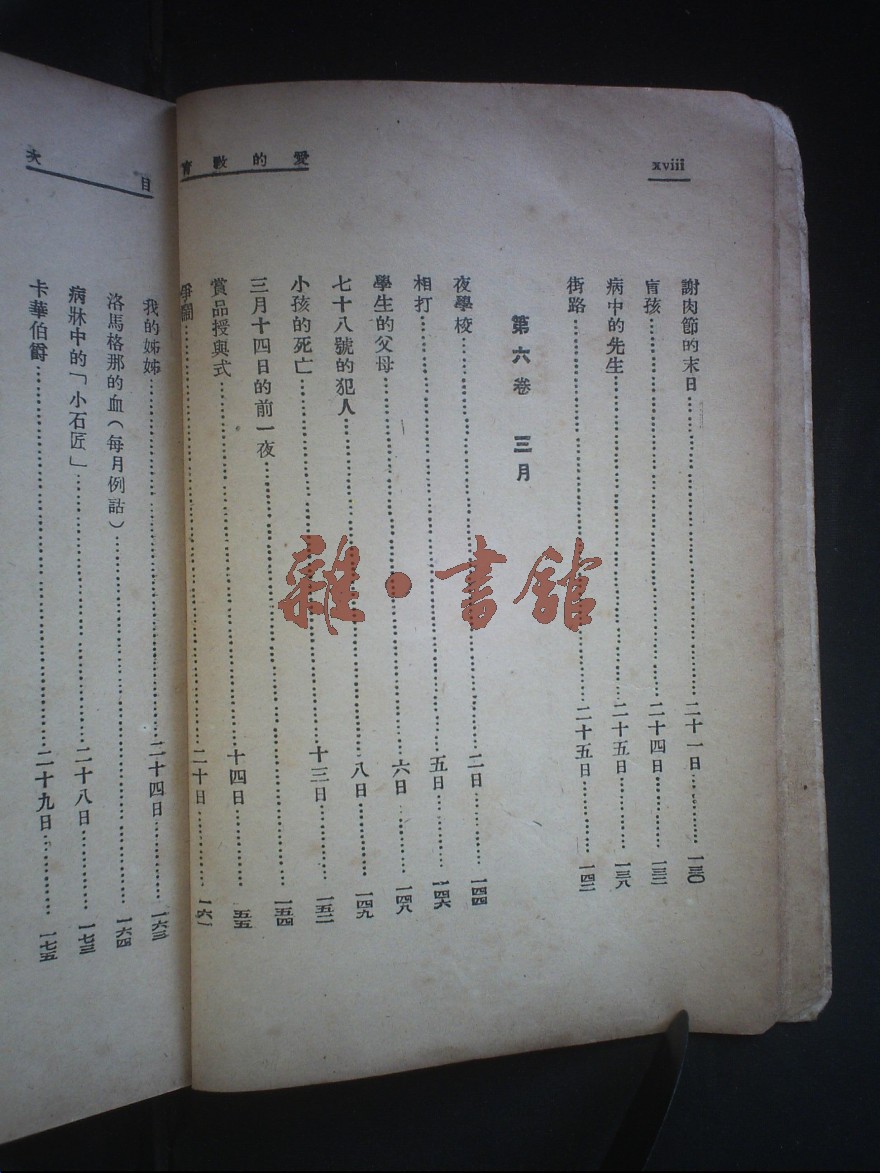 xviii
愛的教育
謝肉節的末日 二十一日 一三〇
盲孩 二十四日 一三二
病中的先生 二十五日 一三八
街路 二十五日 一四二
第六卷 三月
夜學校 二日 一四四
相打 五日 一四六
學生的父母 六日 一四八
七十八號的犯人 八日 一四九
小孩的死亡 十三日 一五二
三月十四日的前一夜 一五四
賞品授與式 十四日 一五五
爭鬪 二十日 一六一
目次
我的姊姊 二十四日 一六三
洛馬格那的血(每月例話) 一六四
病牀中的「小石匠」 二十八日 一七三
卡華伯爵 二十九日 一七五
雜·書館